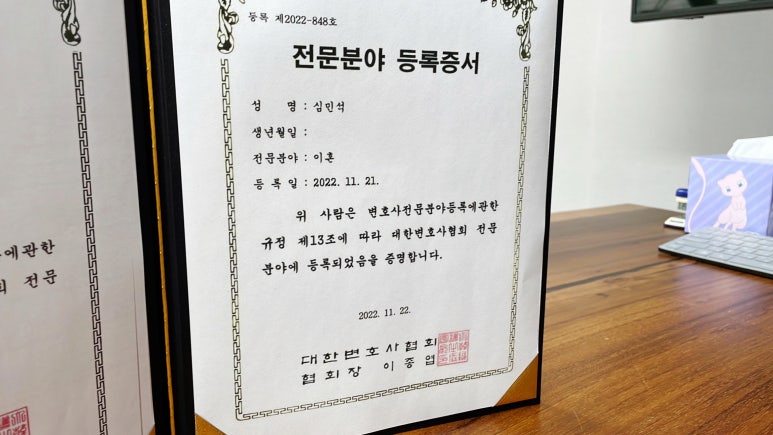 등록 제2022-848호
전문분야 등록증서
성 명 : 심민석
생년월일 :
전문분야 : 이혼
등 록 일 : 2022. 11. 21.
위 사람은 변호사전문분야등록에관한
규정 제13조에 따라 대한변호사협회 전문
분야에 등록되었음을 증명합니다.
2022. 11. 22.
대한변호사협회
협회장 이종엽
에관한
전문